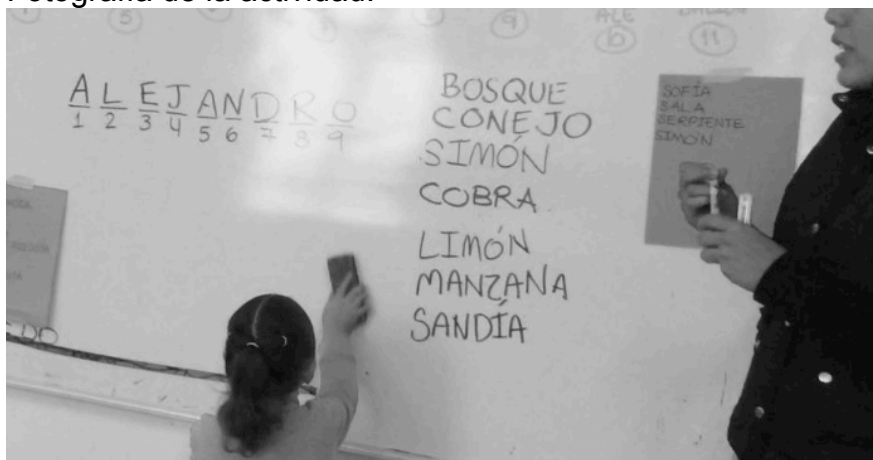 Fotografía de la actividad.
5
9
ALE
6
11
A L E J A N D R O
1 2 3 4 5 6 7 8 9
BOSQUE
CONEJO
SIMÓN
COBRA
LIMÓN
MANZANA
SANDÍA
SOFÍA
SALA
SERPIENTE
SIMÓN